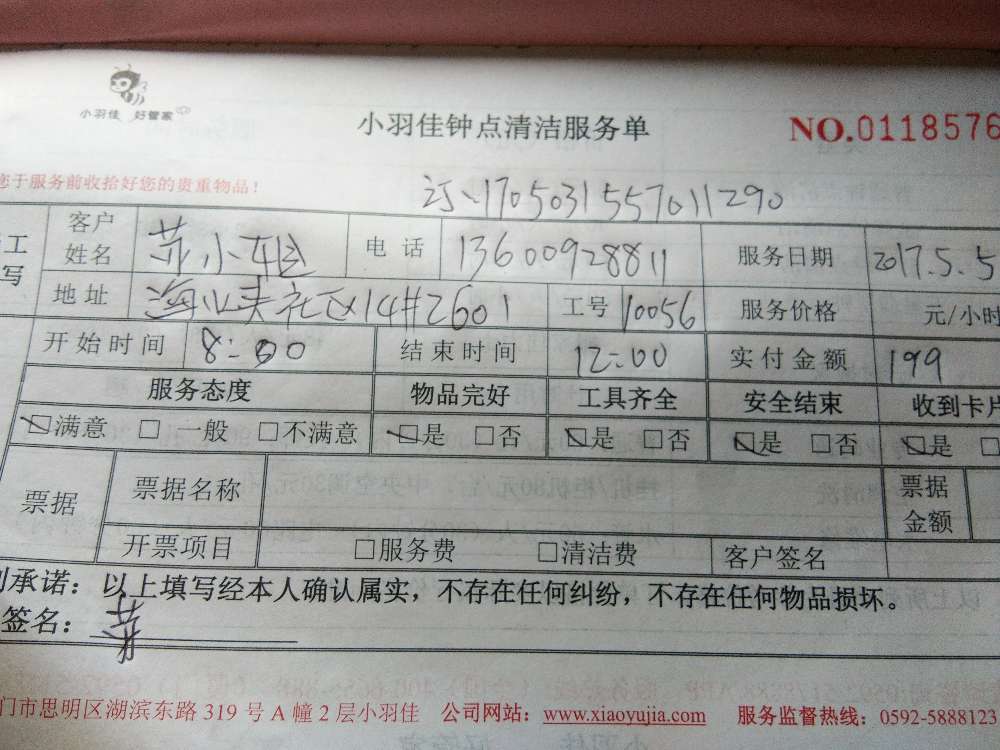 小羽佳 好管家
小羽佳钟点清洁服务单
NO.0118576
您于服务前收拾好您的贵重物品!
订:1705031557011290
工
写
客户
姓名
苏小姐
电话
13600928811
服务日期
2017.5.5
地址
海山美社区14#2601
工号
10056
服务价格
元/小时
开始时间
8:00
结束时间
12:00
实付金额
199
服务态度
物品完好
工具齐全
安全结束
收到卡片
满意 □ 一般 □不满意
是 □否
是 □否
是 □否
是 □
票据
票据名称
票据
金额
开票项目
□服务费 □清洁费
客户签名
承诺:以上填写经本人确认属实,不存在任何纠纷,不存在任何物品损坏。
签名:
门市思明区湖滨东路 319 号 A 幢 2 层小羽佳 公司网站:www.xiaoyujia.com 服务监督热线:0592-5888123